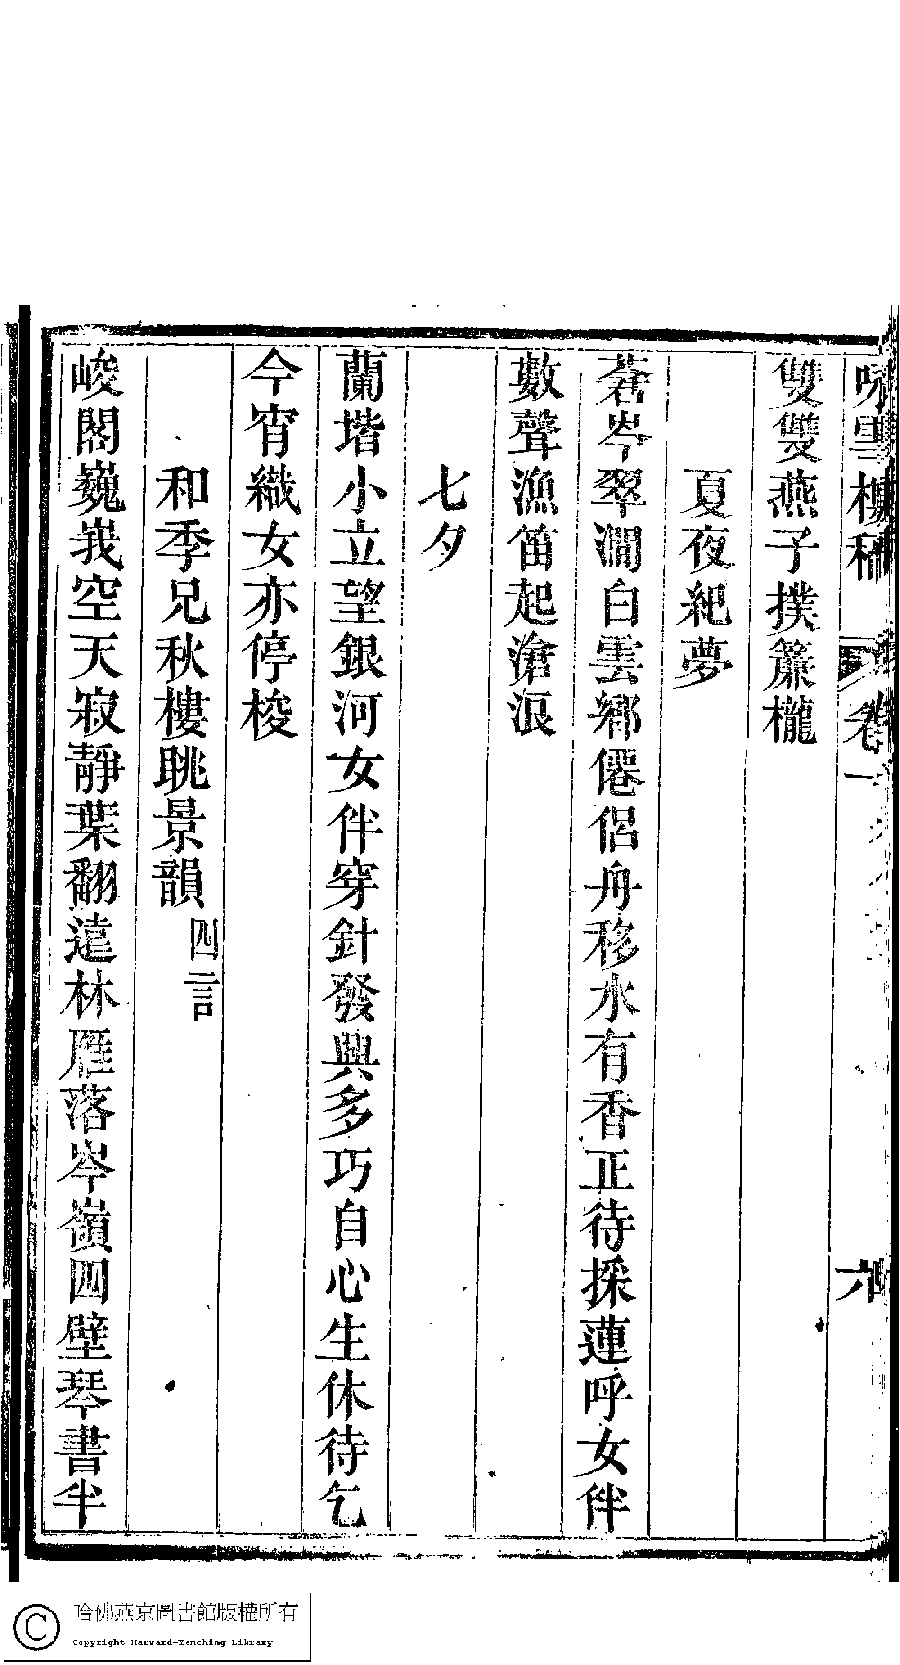 咏雪樓稿 卷一 六
雙雙燕子撲簾櫳
夏夜紀夢
蒼岑翠澗白雲鄉僊侶舟移水有香正待採蓮呼女伴
數聲漁笛起滄浪
七夕
蘭堦小立望銀河女伴穿針發興多巧自心生休待乞
今宵織女亦停梭
和季兄秋樓眺景韻 四言
峻閣巍峩空天寂靜葉翻遠林雁落岑嶺四壁琴書半
哈佛燕京圖書館版權所有
Copyright Harvard-Yenching Library